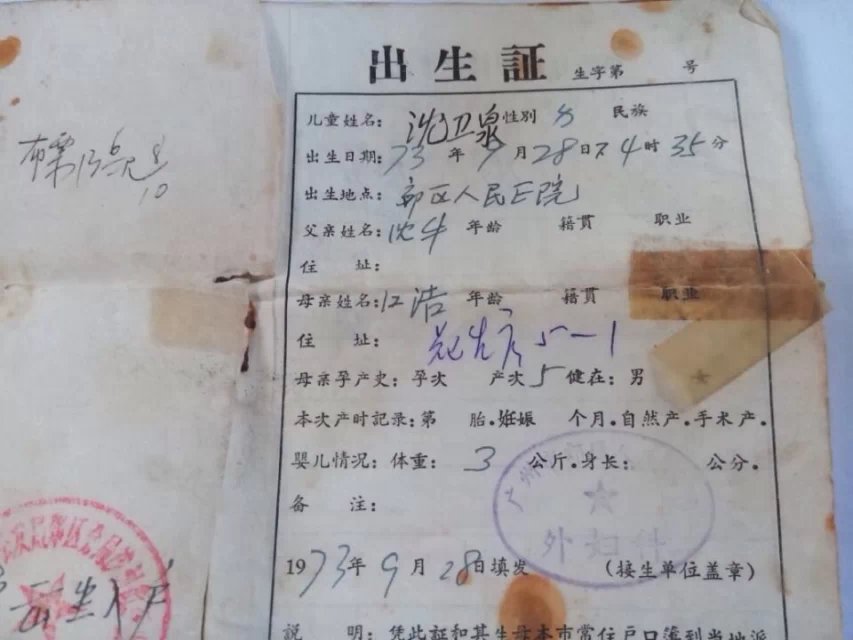 出生証 生字第 号
儿童姓名：沈卫泉 性别 民族
出生日期：73年9月28日下4时35分
出生地点：郊区人民医院
父亲姓名：沈牛 年龄 籍贯 职业
住 址：
母亲姓名：江浩 年龄 籍贯 职业
住 址： 5-1
母亲孕产史：孕次 产次5 健在：男
本次产时記录：第 胎.妊娠 个月.自然产.手术产.
婴儿情况：体重：3公斤.身长： 公分.
备 注：
广州
外妇科
1973年9月28日填发 （接生单位盖章）
出生入户
説 明：凭此証和其生母本市常住戶口簿到当地派